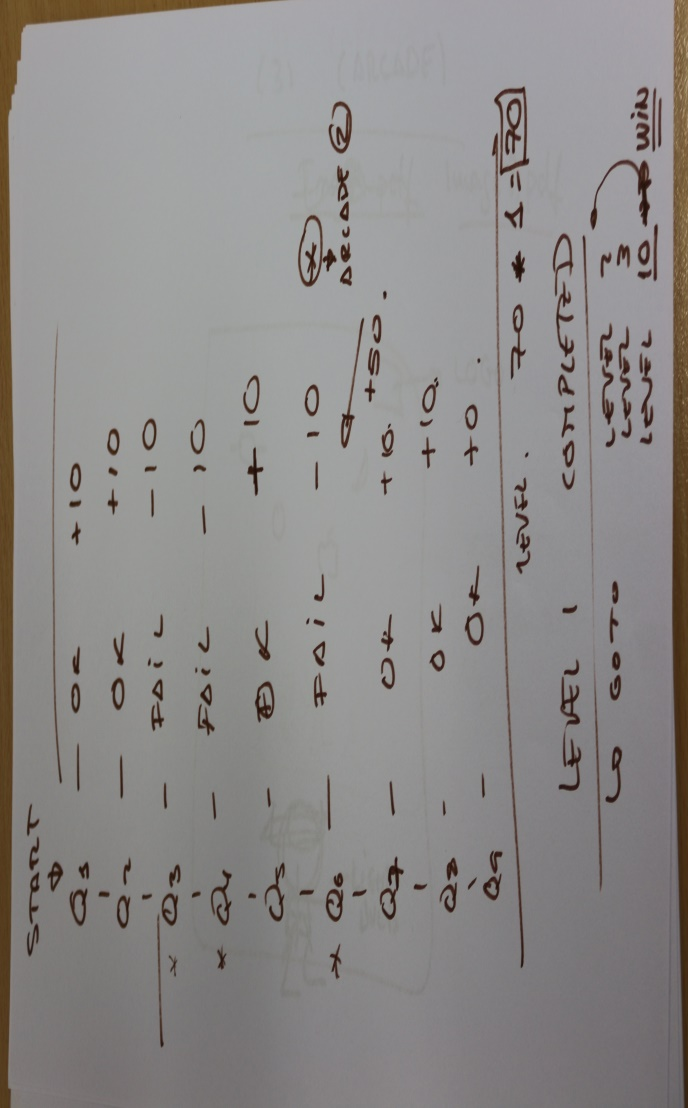 START
Q1 — OK +10
Q2 — OK +10
* Q3 — FAIL — 10
* Q4 — FAIL — 10
Q5 — OK + 10
* Q6 — FAIL — 10
ARCADE 2
+50.
Q7 — OK +10.
Q8 - OK +10.
Q9 — OK +0.
LEVEL. 70 * 1 = 70
LEVEL 1 COMPLETED
GOTO LEVEL 2
LEVEL 3
LEVEL 10 WIN